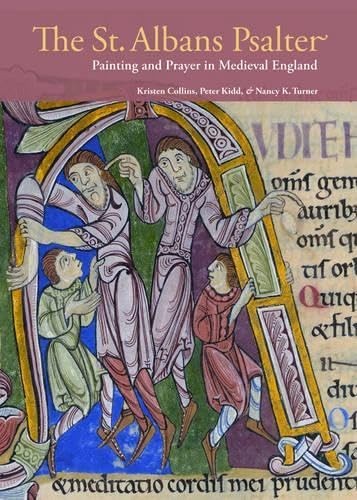 The St. Albans Psalter
Painting and Prayer in Medieval England
Kristen Collins, Peter Kidd, & Nancy K. Turner
UDITE
auribu
tis orb
Quiq
& fili
& meditatio cordis mei prudent